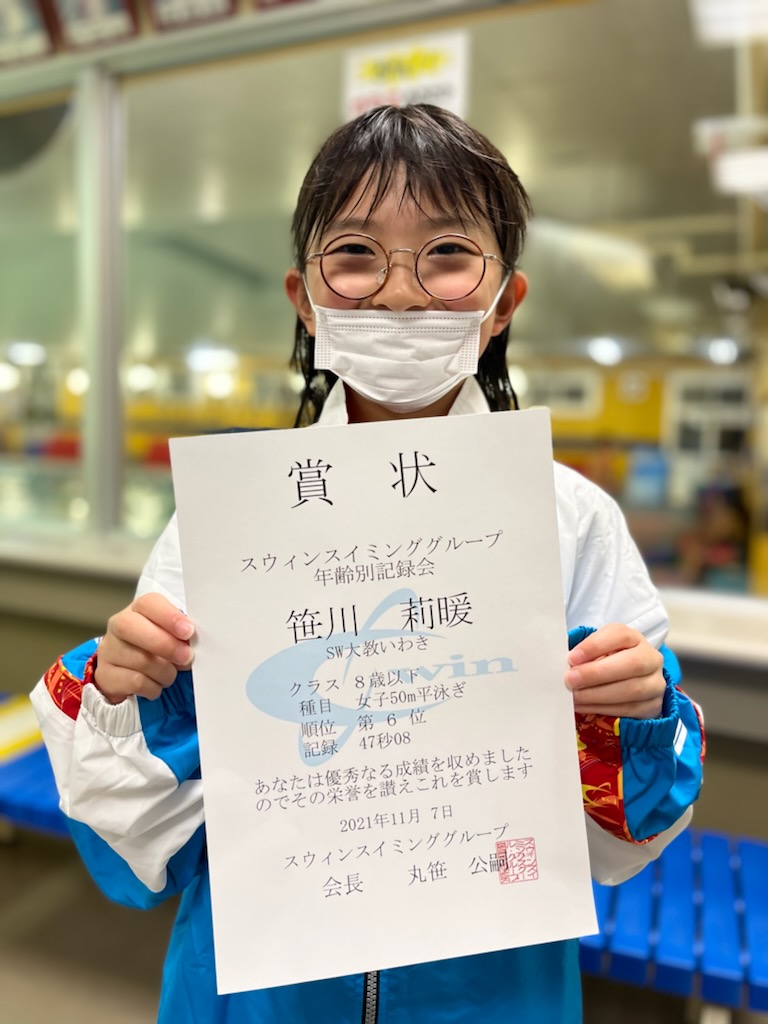 賞　状
スウィンスイミンググループ
年齢別記録会
笹川　莉暖
SW大教いわき
クラス 8歳以下
種目 女子50m平泳ぎ
順位 第 6 位
記録 47秒08
あなたは優秀なる成績を収めました
のでその栄誉を讃えこれを賞します
2021年11月 7日
スウィンスイミンググループ
会長　丸笹　公嗣